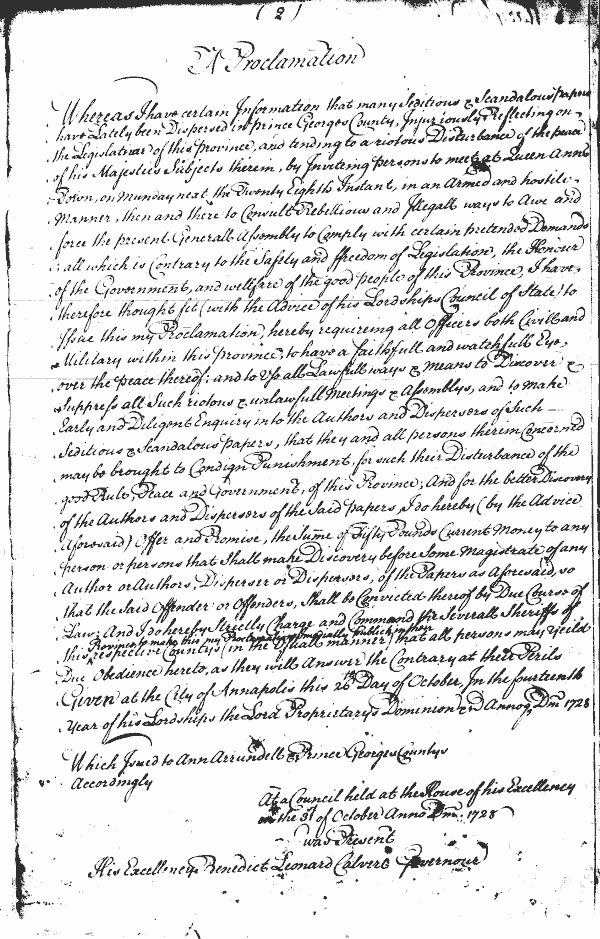 ( 2 )
A Proclamation
Whereas I have certain Information that many Seditious & Scandalous papers
have Lately been Dispersed in Prince Georges County, Injuriously Reflecting on
the Legislature of this Province, and tending to a riotous Disturbance of the peace
of his Majesties Subjects therein, by Inviteing persons to meet at Queen Anne
Town, on Munday next the Twenty Eighth Instant, in an Armed and hostile
Manner, then and there to Consult Rebellious and Illegall ways to Awe and
force the present Generall Assembly to Comply with certain pretended Demands
all which is Contrary to the Safety and ffreedom of Legislation, the Honour
of the Government, and wellfare of the good people of this Province, I have
therefore thought fit (with the Advice of his Lordships Council of State) to
Issue this my Proclamation, hereby requireing all Officers both Civill and
Military within this Province, to have a faithfull and watchfull Eye
over the peace thereof; and to Use all Lawfull ways & means to Discover &
suppress all Such riotous & unlawfull Meetings & Assemblys, and to make
Early and Diligent Enquiry into the Authors and Dispersers of Such
Seditious & Scandalous papers, that they and all persons therein Concerned
may be brought to Condign Punishment, for such their Disturbance of the
good Rule, Peace and Government, of this Province; And for the better Discovery
of the Authors and Dispersers of the Said papers, I do hereby (by the Advice
Aforesaid) Offer and Promise, the Summe of Fifty Pounds Current Money to any
person or persons that Shall make Discovery before Some Magistrate of any
Author or Authors, Disperser or Dispersers, of the Papers as Aforesaid, so
that the Said Offender or Offenders, Shall be Convicted thereof by Due Course of
Law; And I do hereby Strictly Charge and Command the Severall Sheriffs of
this Province to make this my Proclamation immediatly Publick in their
respective Countys (in the Usuall manner) that all persons may Yeild
Due Obedience hereto, as they will Answer the Contrary at their Perils
Given at the City of Annapolis this 26th Day of October, In the fourteenth
Year of his Lordships the Lord Proprietarys Dominion and Annoq Dm 1728
Which Issued to Ann Arrundell & Prince Georges Countys
Accordingly
At a Council held at the House of his Excellency
on the 31 of October Anno Dm. 1728
was Present
His Excellency Benedict Leonard Calvert Governour